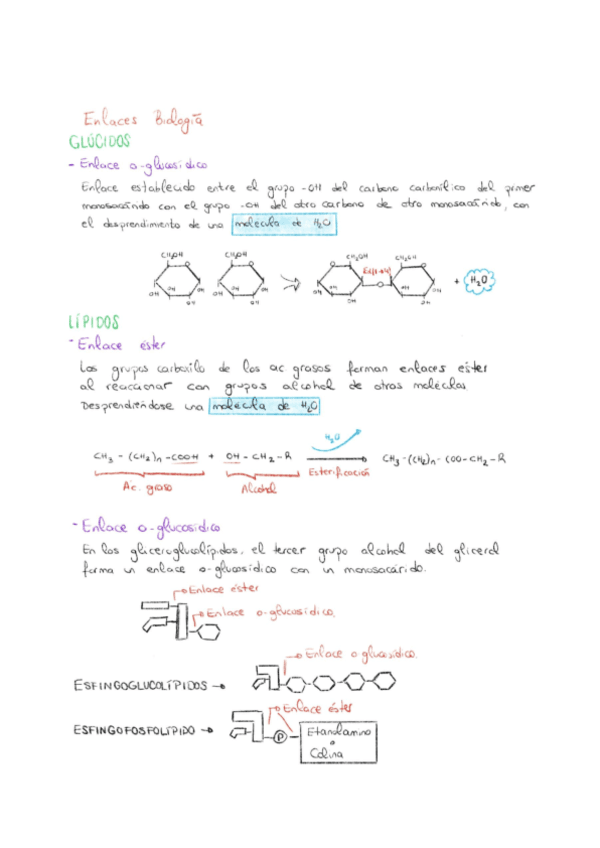 Enlaces Biología
GLÚCIDOS
- Enlace o-glucosídico
Enlace establecido entre el grupo -OH del carbono carbonílico del primer
monosacárido con el grupo -OH del otro carbono de otro monosacárido, con
el desprendimiento de una molécula de H₂O
CH₂OH CH₂OH CH₂OH CH₂OH
OH OH OH OH OH OH OH OH
+ H₂O
LÍPIDOS
- Enlace éster
Los grupos carboxilo de los ac grasos forman enlaces éster
al reaccionar con grupos alcohol de otras moléculas.
Desprendiéndose una molécula de H₂O
H₂O
CH₃ - (CH₂)n - COOH + OH - CH₂ - R CH₃ - (CH₂)n - COO - CH₂ - R
Esterificación
Ac. graso Alcohol
- Enlace o-glucosídico
En los gliceroglucolípidos, el tercer grupo alcohol del glicerol
forma un enlace o-glucosídico con un monosacárido.
Enlace éster
Enlace o-glucosídico.
Enlace o glucosídico.
ESFINGOGLUCOLÍPIDOS →
Enlace éster
ESFINGOFOSFOLÍPIDO → P Etanolamina
o
Colina